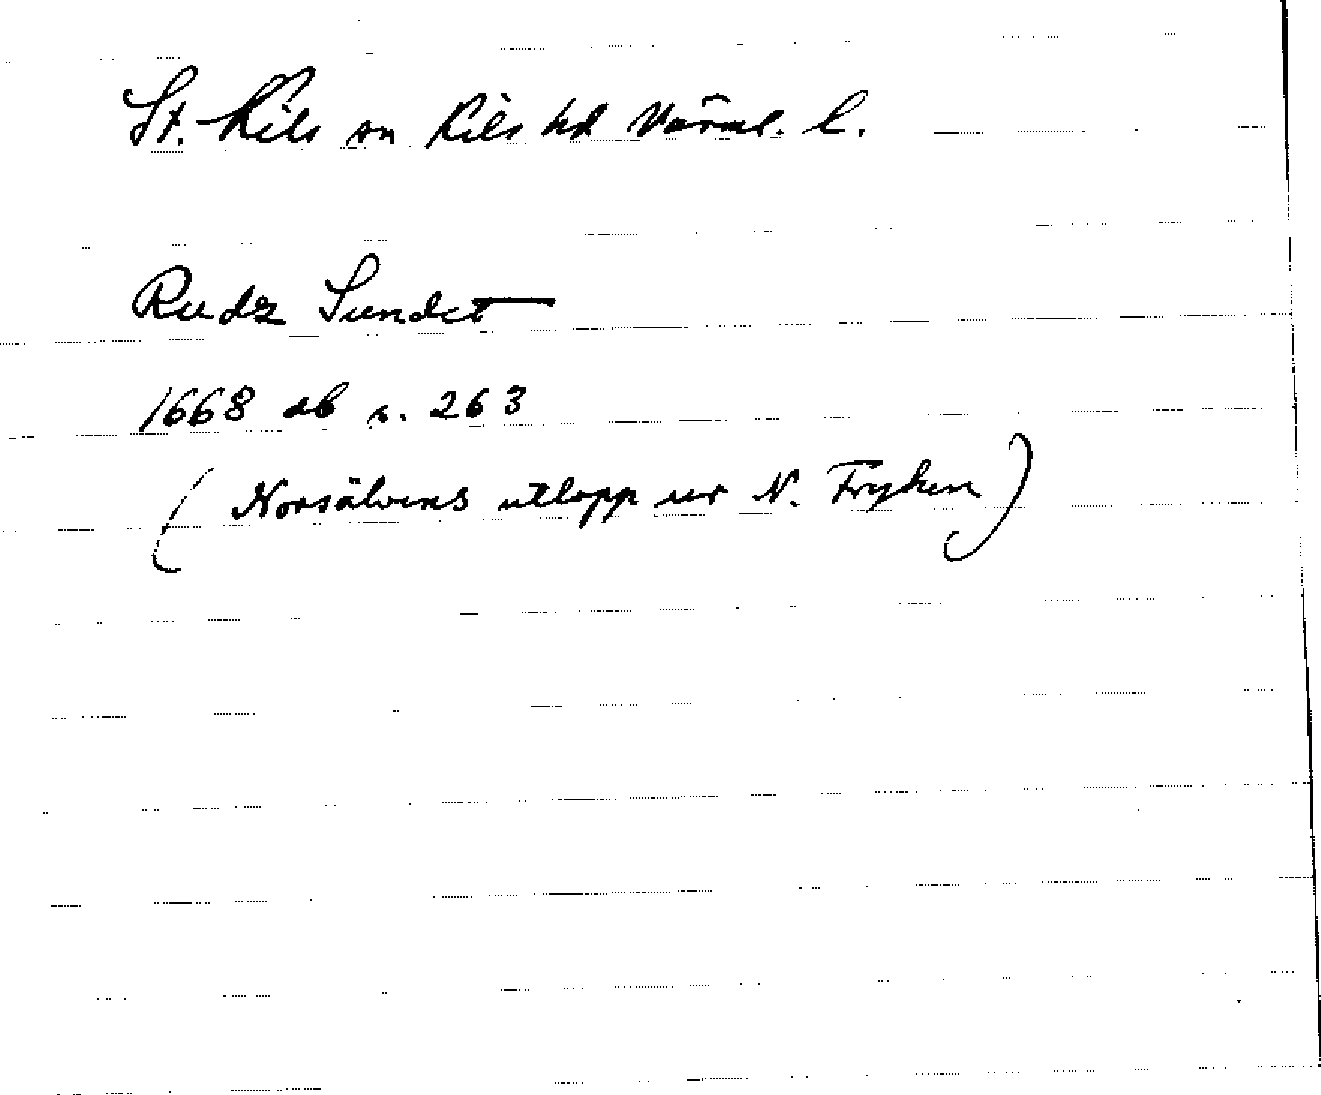 St. Kils sn Kils hd Värml. l.
Rudz Sundet
1668 db s. 263
(Norsälvens utlopp ur N. Fryken)